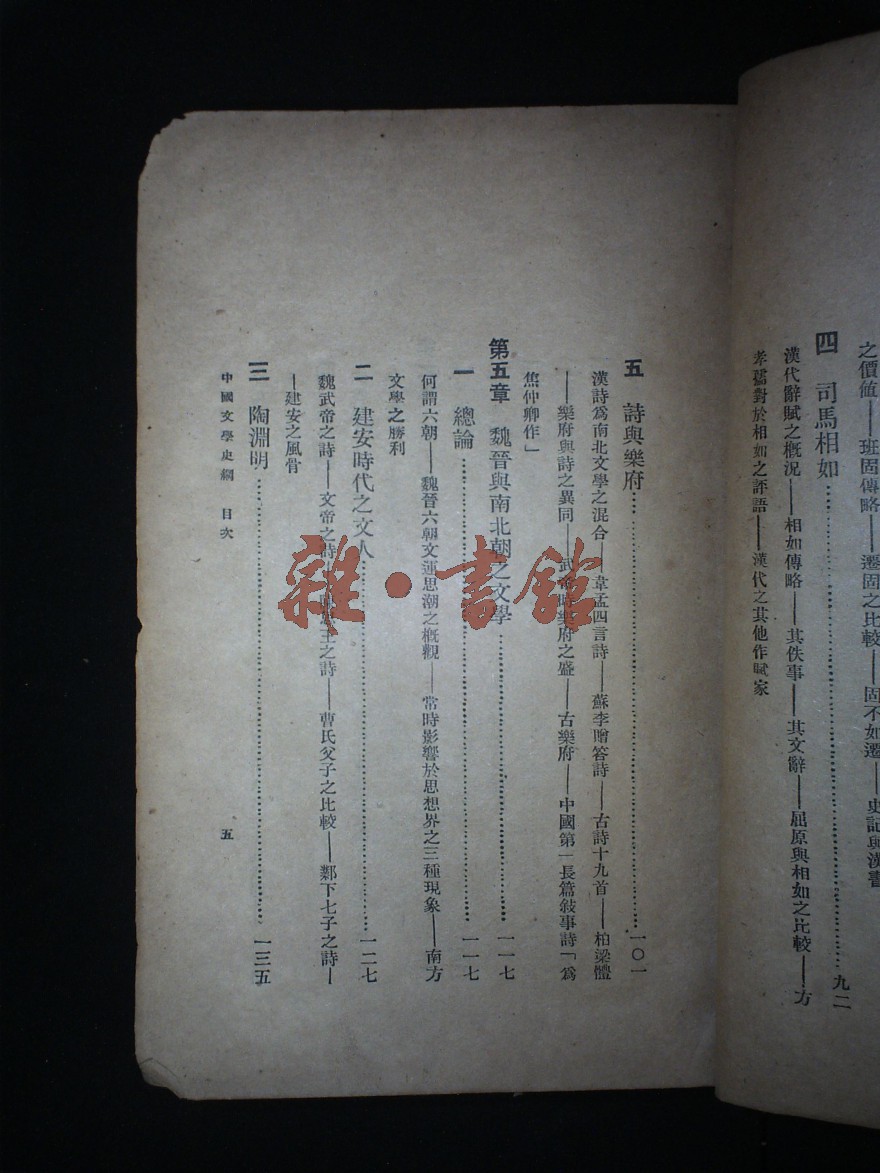 之價値——班固傳略——遷固之比較——固不如遷——史記與漢書
四　司馬相如……九二
漢代辭賦之概況——相如傳略——其佚事——其文辭——屈原與相如之比較——方
孝孺對於相如之評語——漢代之其他作賦家
五　詩與樂府……一〇一
漢詩爲南北文學之混合——韋孟四言詩——蘇李贈答詩——古詩十九首——柏梁體
——樂府與詩之異同——武帝時樂府之盛——古樂府——中國第一長篇敍事詩「爲
焦仲卿作」
第五章　魏晉與南北朝之文學……一一七
一　總論……一一七
何謂六朝——魏晉六朝文運思潮之概觀——常時影響於思想界之三種現象——南方
文學之勝利
二　建安時代之文人……一二七
魏武帝之詩——文帝之詩——王之詩——曹氏父子之比較——鄴下七子之詩—
—建安之風骨
三　陶淵明……一三五
中國文學史綱　目次
五
雜·書館